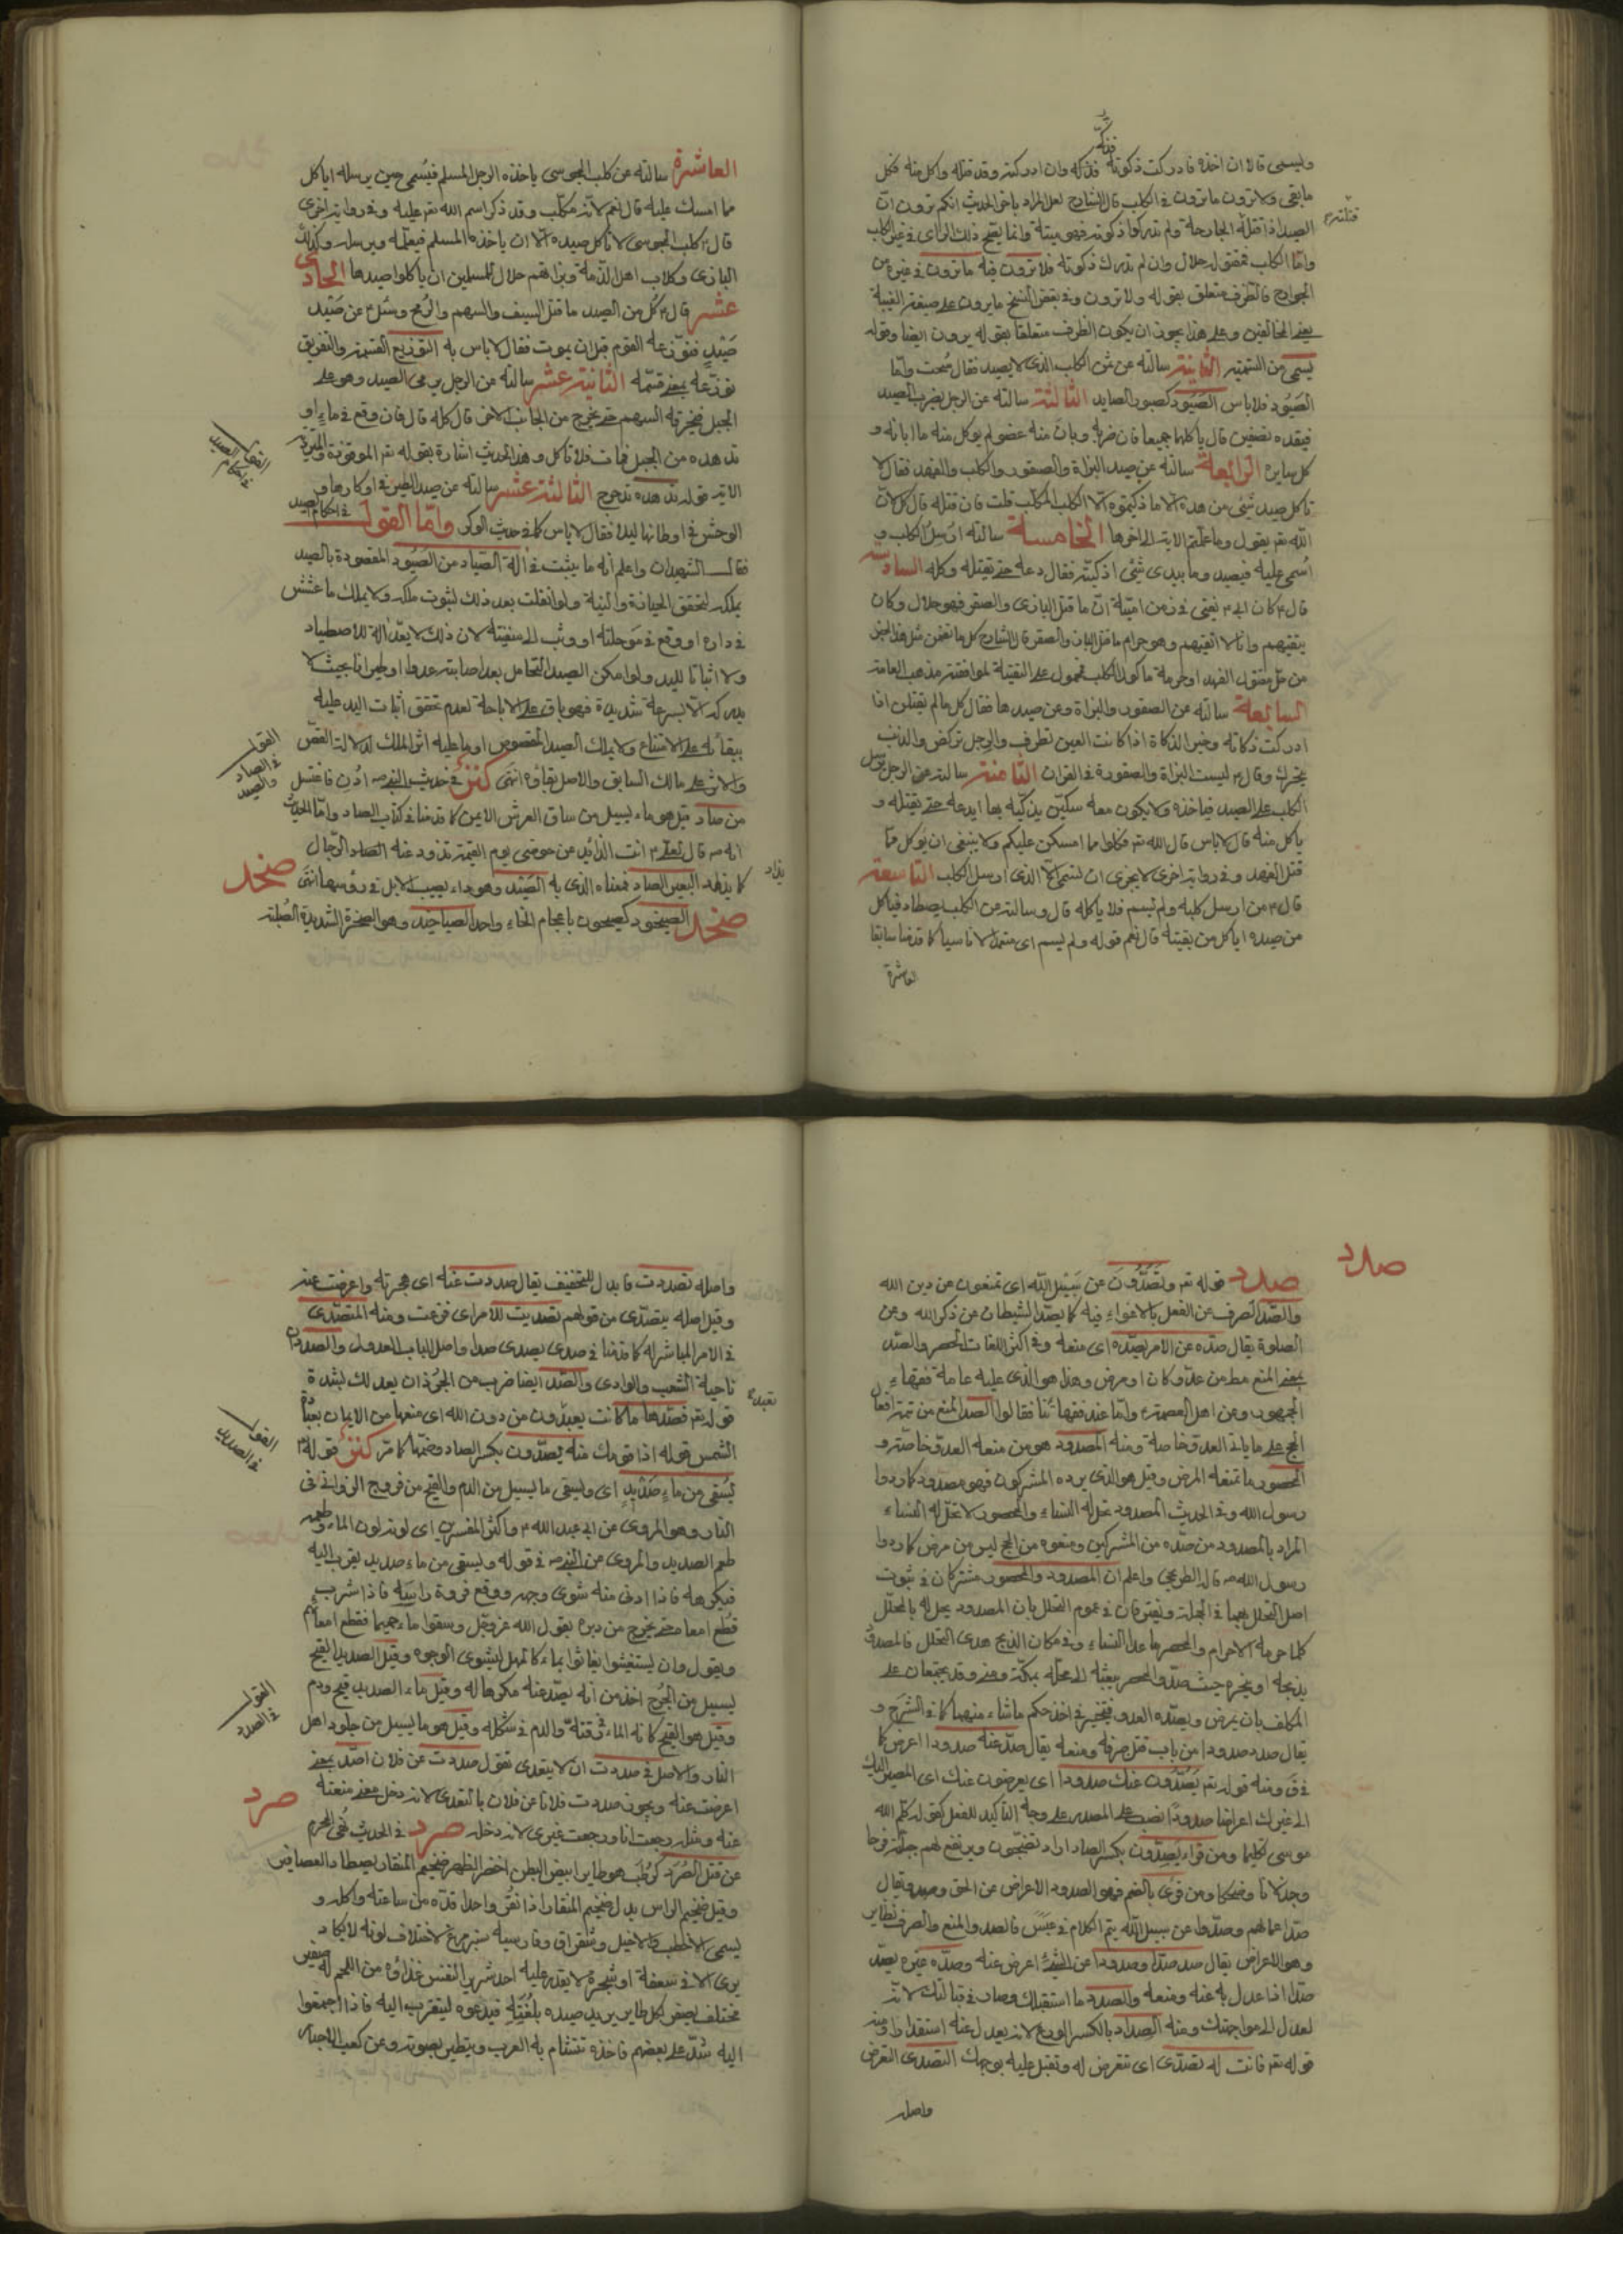 وليسمى قالا ان اخذه فادركت ذكوته فذكه وان ادركته وقد قتله واكل منه فكل
ما بقى ولا ترون ما ترون فى الكلب قال الشارح لعل المراد باخر الحديث انكم ترون ان
الصيد اذا قتله الجارحة ولم تدركوا ذكوته فهو ميتة وانما يصح ذلك الراى فى غير الكلب
واما الكلب فمقتوله حلال وان لم تدرك ذكوته فلا ترون فيه ما ترون فى غيره من
الجوارح فالظرف متعلق بقوله ولا ترون وفى بعض النسخ ما يرون على صيغة الغيبة
يعنى المخالفين وعلى هذا يجوز ان يكون الظرف متعلقا بقوله يرون ايضا وقوله
يسمى من التسمية الثانية سالته عن ثمن الكلب الذى لا يصيد فقال سحت واما
الصيود فلا باس الصيود كصبور الصايد الثالثة سالته عن الرجل يضرب الصيد
فيقده نصفين قال ياكلهما جميعا فان ضربه وبان منه عضو لم يوكل منه ما ابانه و
كل سايره الرابعة سالته عن صيد البزاة والصقور والكلب والفهد فقال لا
تاكل صيد شئ من هذه الا ما ذكيتموه الا الكلب المكلب قلت فان قتله قال كل لان
الله تعم يقول وما علمتم الاية الى اخرها الخامسة سالته ارسل الكلب و
اسمى عليه فيصيد وما بيدى شئ اذكيه فقال دعه حتى يقتله وكله السادسة
قال ع كان ابى ع يفتى فى زمن امية ان ما قتل البازى والصقر فهو حلال وكان
يتقيهم وانا لا اتقيهم وهو حرام ما قتل الباز والصقر قال الشارح كل ما تضمن مثل هذا الخبر
من حل مقتول الفهد او حرمة ماكول الكلب محمول على التقية لموافقته مذهب العامة
السابعة سالته عن الصقور والبزاة وعن صيدها فقال كل ما لم يقتلن اذا
ادركت ذكاته وخير الذكاة اذا كانت العين تطرف والرجل تركض والذنب
يتحرك وقال ع ليست البزاة والصقورة فى القران الثامنة سالته عن الرجل يرسل
الكلب على الصيد فياخذه ولا يكون معه سكين يذكيه بها ايدعه حتى يقتله و
ياكل منه قال لا باس قال الله تعم فكلوا مما امسكن عليكم ولا ينبغى ان يوكل مما
قتل الفهد وفى رواية اخرى لا يجزى ان يسمى الا الذى ارسل الكلب التاسعة
قال ع من ارسل كلبه ولم يسم فلا ياكله قال وسالته عن الكلب يصطاد فياكل
من صيده اياكل من بقيته قال نعم قوله ولم يسم اى متعمدا لا ناسيا كما قدمنا سابقا
العاشرة
العاشرة سالته عن كلب المجوسى ياخذه الرجل المسلم فيسمى حين يرسله اياكل
مما امسك عليه قال نعم لانه مكلب وقد ذكر اسم الله تعم عليه وفى رواية اخرى
قال ع كلب المجوسى لا تاكل صيده الا ان ياخذه المسلم فيعلمه ويرسله وكذلك
البازى وكلاب اهل الذمة وبزاتهم حلال للمسلمين ان ياكلوا صيدها الحادى
عشر قال ع كل من الصيد ما قتل السيف والسهم والرمح وسئل ع عن صيد
صيد فتوزعه القوم قبل ان يموت فقال لا باس به التوزيع القسمة والتفريق
توزعه بمعنى قسمه الثانية عشر سالته عن الرجل يرمى الصيد وهو على
الجبل فيخرقه السهم حتى يخرج من الجانب الاخر قال كله قال فان وقع فى ماء او
تدهده من الجبل فمات فلا تاكل وهذا الحديث اشارة بقوله تعم الموقوذة والمتردية
الاية قوله تدهده تدحرج الثالثة عشر سالته عن صيد الطير فى اوكارها و
الوحش فى اوطانها ليلا فقال لا باس كما فى حديث الوكر واما القول فى احكام الصيد
فقال الشهيدان واعلم انه ما يثبت فى آلة الصياد من الصيود المقصودة بالصيد
يملكه لتحقق الحيازة والنية ولو انفلت بعد ذلك لثبوت ملكه ولا يملك ما عشش
فى داره او وقع فى موحلته او وثب الى سفينته لان ذلك لا يعد آلة للاصطياد
ولا اثباتا لليد ولو امكن الصيد التحامل بعد اصابته عدوا او طيرانا بحيث لا
يدركه الا بسرعة شديدة فهو باق على الاباحة لعدم تحقق اثبات اليد عليه
ببقائه على الامتناع ولا يملك الصيد المقصوص او ما عليه اثر الملك لدلالة القص
والاثر على مالك السابق والاصل بقاؤه انتهى كنز فى حديث النبى ص ادن فاغتسل
من صاد قيل هو ماء يسيل من ساق العرش الايمن كما قدمنا فى كتاب الصاد واما الحديث
انه ص قال لعلى ع انت الذائد عن حوضى يوم القيمة تذود عنه الصاد الرجال
كما يذاد البعير الصاد فمعناه الذى به الصيد وهو داء يصيب الابل فى رؤسها انتهى
صخد الصيخود كصيحون باعجام الخاء واحد الصياخيد وهو الصخرة الشديدة الصلبة
القول فى احكام الصيد
القول فى الصاد والصيد
صخد
صدد
صدد قوله تعم وتصدون عن سبيل الله اى تمنعون عن دين الله
والصد الصرف عن الفعل بالاغواء فيه كما يصد الشيطان عن ذكر الله وعن
الصلوة يقال صده عن الامر يصده اى منعه وفى اكثر اللغات الحصر والصد
بمعنى المنع مط من عدو كان او مرض وهذا هو الذى عليه عامة فقهاء
الجمهور ومن اهل العصمة ع واما عند فقهائنا فقالوا الصد المنع من تمتع افعال
الحج على ما ياتى العدو خاصة ومنه المصدود هو من منعه العدو خاصة و
المحصور ما تمنعه المرض وقيل هو الذى يرده المشركون فهو مصدود كما ردوا
رسول الله وفى الحديث المصدود تحل له النساء والمحصور لا تحل له النساء
المراد بالمصدود من صده من المشركين ومنعوه من الحج ليس من مرض كما ردوا
رسول الله ص قال الطريحى واعلم ان المصدود والمحصور مشتركان فى ثبوت
اصل التحلل بهما فى الجملة ويفترقان فى عموم التحلل بان المصدود يحل له بالمحلل
كلما حرمه الاحرام والمحصر ما عدا النساء وفى مكان الذبح هدى التحلل فالمصدود
يذبحه او ينحره حيث صد والمحصر يبعثه الى محله بمكة ومنى وقد يجتمعان على
المكلف بان يمرض ويصده العدو فيتخير فى اخذ حكم ما شاء منهما كما فى الشرح و
يقال صدد صدودا من باب قتل صرفه ومنعه يقال صد عنه صدودا اعرض كما
فى ق ومنه قوله تعم يصدون عنك صدودا اى يعرضون عنك اى المصير اليك
الى غيرك اعراضا صدودا نصب على المصدر على وجه التاكيد للفعل كقوله كلم الله
موسى تكليما ومن قراء يصدون بكسر الصاد اراد تضجون ويرتفع لهم جلبة فرحا
وجذلانا وضحكا ومن قرئ بالضم فهو الصدود الاعراض عن الحق وصد ويقال
صد اعمالهم وصدوا عن سبيل الله يتم الكلام فى عبس فالصد والمنع والصرف نظاير
وهو الاعراض يقال صد صدا وصدودا عن الشئ اعرض عنه وصده غيره يصد
صدا اذا عدل به عنه ومنعه والصدد ما استقبلك وصار فى قبالتك لانه
لعدل الى مواجهتك ومنه الصداد بالكسر الوزغ لانه يعدل عنه استقذارا ومنه
قوله تعم فانت له تصدى اى تتعرض له وتقبل عليه بوجهك التصدى التعرض
واصله
واصله تصددت فابدل للتخفيف يقال صددت عنه اى هجرته واعرضت عنه
وقيل اصله يتصدى من قولهم تصديت للامر اى فزعت ومنه المتصدى
فى الامر المباشر له كما قدمنا فى صدى يصدى صدا واصل الباب العدول والصددان
ناحية الشعب والوادى والصد ايضا ضرب من الجرذان يعد لك لشدة
قوله تعم فصدها ما كانت يعبدون من دون الله اى منعها من الايمان بعبادة
الشمس قوله اذا قومك منه يصدون بكسر الصاد وضمها كما مر كنز قوله تعم
يسقى من ماء صديد اى ويسقى ما يسيل من الدم والقيح من فروج الزوانى فى
النار وهو المروى عن ابى عبد الله ع واكثر المفسرين اى لونه لون الماء وطعمه
طعم الصديد والمروى عن النبى ص فى قوله ويسقى من ماء صديد يقرب اليه
فيكرهه فاذا ادنى منه شوى وجهه ووقع فروة راسه فاذا شرب
قطع امعاه حتى يخرج من دبره يقول الله عز وجل وسقوا ماء حميما فقطع امعائهم
ويقول وان يستغيثوا يغاثوا بماء كالمهل يشوى الوجوه وقيل الصديد القيح
يسيل من الجرح اخذ من انه يصد عنه مكرها له وقيل ماء الصديد قيح ودم
وقيل هو القيح كانه الماء فى رقته والدم فى شكله وقيل هو ما يسيل من جلود اهل
النار والاصل فى صددت ان لا يتعدى تقول صددت عن فلان اصد بمعنى
اعرضت عنه ويجوز صددت فلانا عن فلان بالتعدى لانه دخل معنى منعته
عنه ومثله رجعت انا ورجعت غيرى لانه دخله صرد فى الحديث نهى المحرم
عن قتل الصرد كرطب هو طاير ابيض البطن اخضر الظهر ضخيم المنقار يصطاد العصافير
وقيل ضخيم الراس بدل ضخيم المنقار اذا نقر واحدا قده من ساعته واكله و
يسمى الاخطب والاخيل وشقراق وفارسيه سبزمرغ لاختلاف لونه لا يكاد
يرى الا فى سعفة او شجرة لا يقدر عليه احد شرير النفس غذاؤه من اللحم له صفير
مختلف يصفر لكل طاير يريد صيده بلغته فيدعوه ليتقرب اليه فاذا اجتمعوا
اليه شد على بعضهم فاخذه تتشأم به العرب ويتطير بصوته وعن كعب الاحبار
القول فى الصديد
القول فى الصرد
صرد